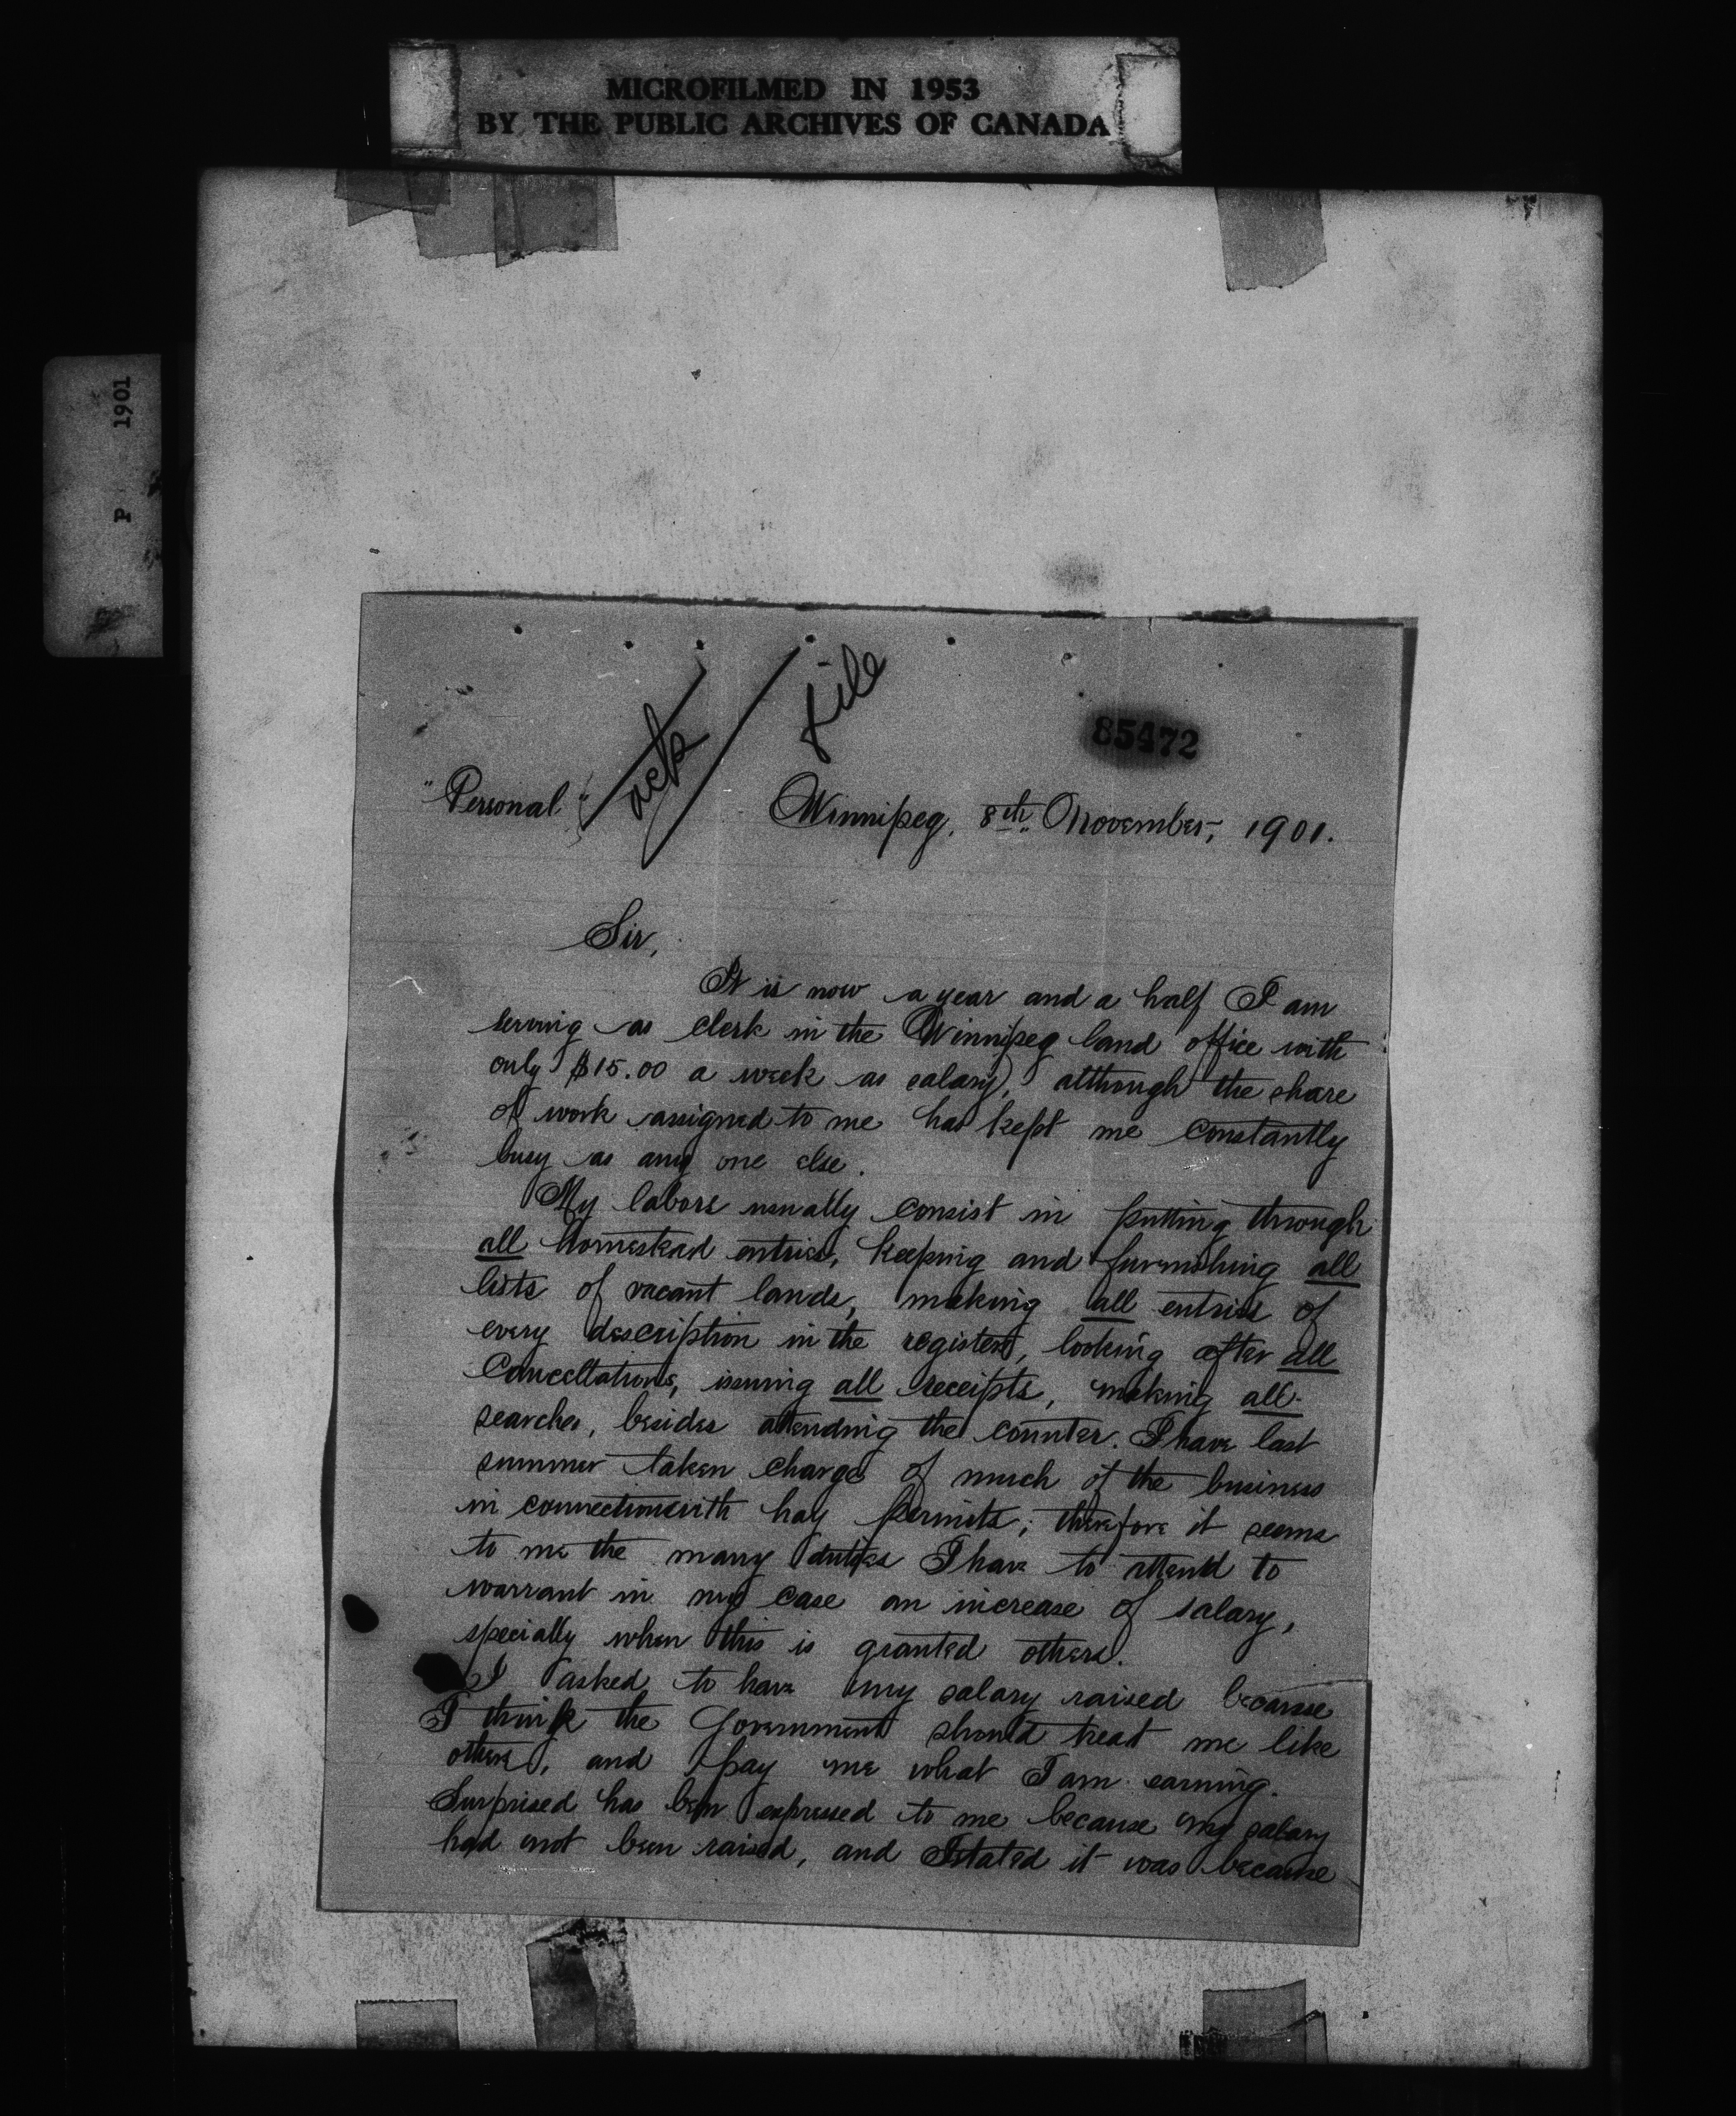 MICROFILMED IN 1953
BY THE PUBLIC ARCHIVES OF CANADA
P 1901
ack
file
85472
"Personal"
Winnipeg, 8th November, 1901.
Sir,
It is now a year and a half I am
serving as clerk in the Winnipeg land office with
only $15.00 a week as salary, although the share
of work assigned to me has kept me constantly
busy as any one else.
My labors usually consist in putting through
all homestead entries, keeping and furnishing all
lists of vacant lands, making all entries of
every description in the registers, looking after all
Cancellations, issuing all receipts, making all
searches, besides attending the counter. I have last
summer taken charge of much of the business
in connection with hay permits; therefore it seems
to me the many duties I have to attend to
warrant in my case an increase of salary,
specially when this is granted others.
I asked to have my salary raised because
I think the Government should treat me like
others, and pay me what I am earning.
Surprised has been expressed to me because my salary
had not been raised, and I stated it was because